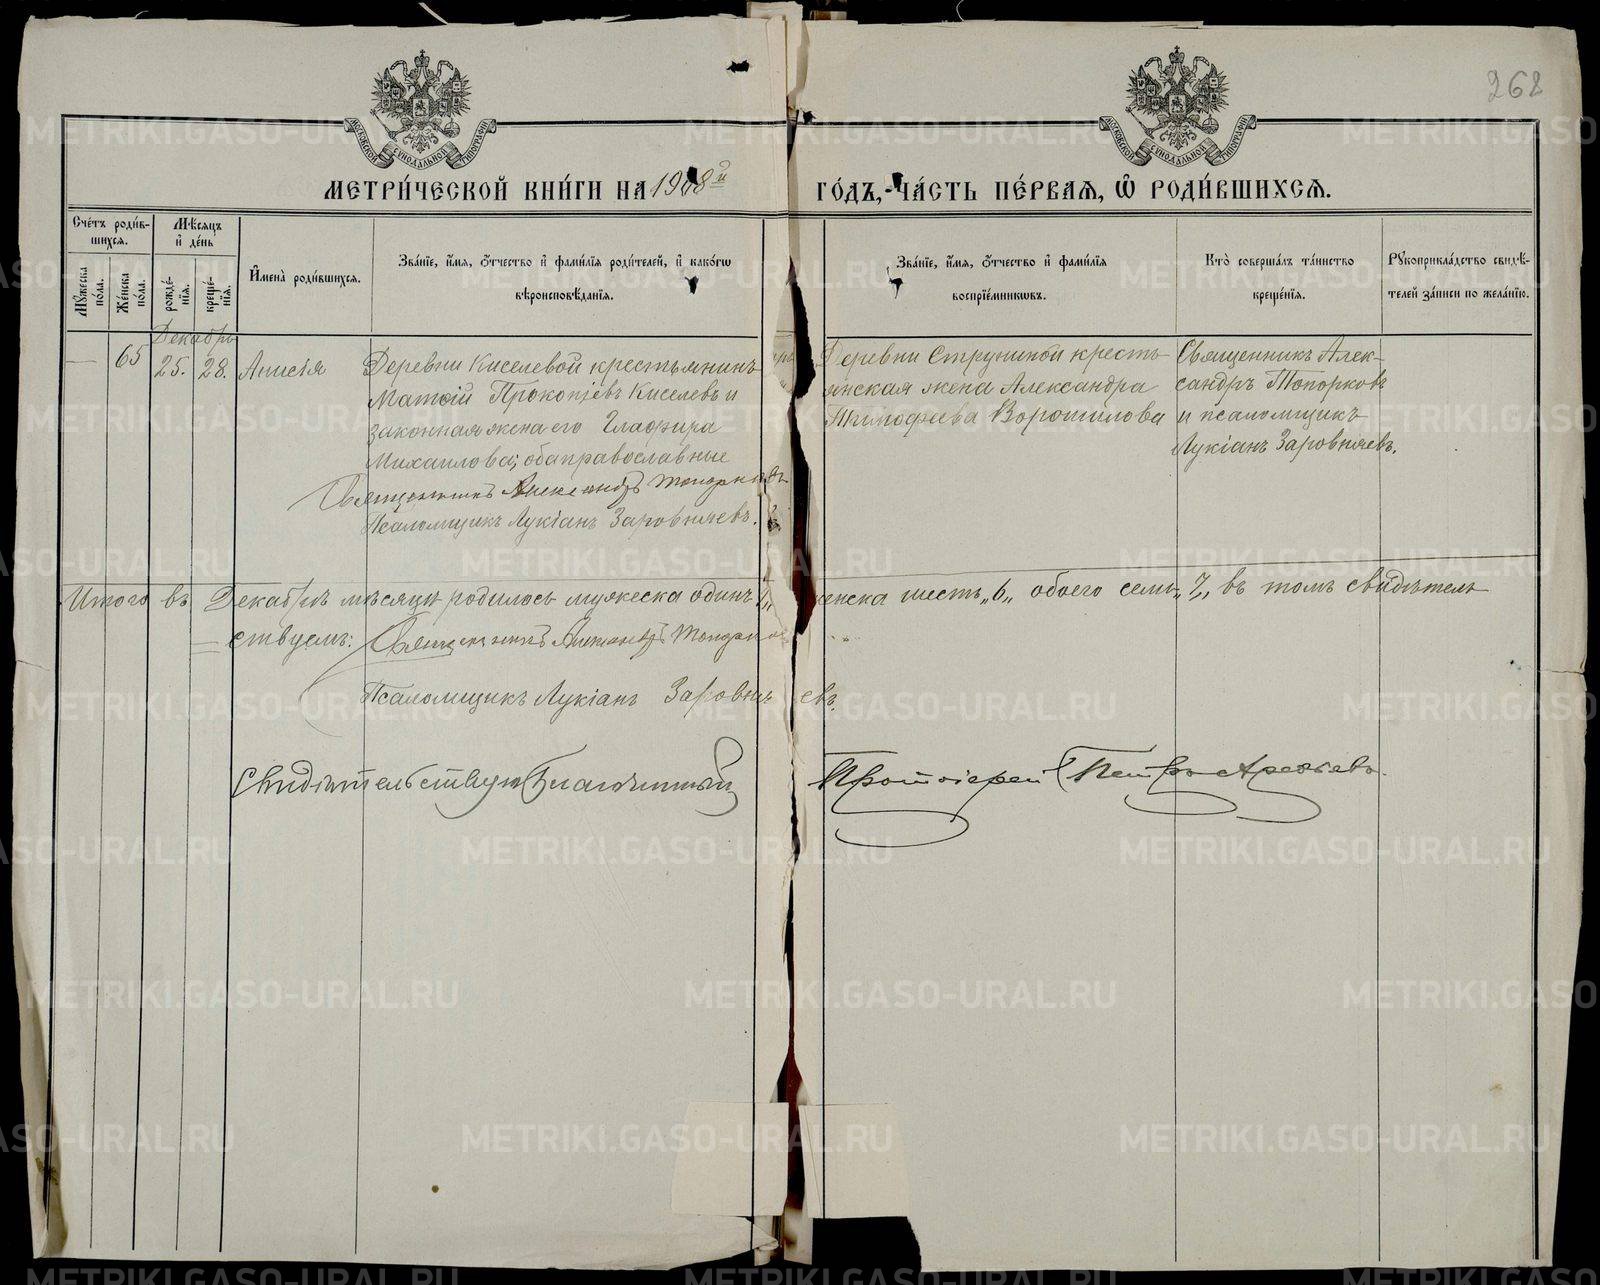 262
МОСКОВСКОЙ СѴНОДАЛЬНОЙ ТИПОГРАФІИ
МОСКОВСКОЙ СѴНОДАЛЬНОЙ ТИПОГРАФІИ
МЕТРИ́ЧЕСКОЙ КНИ́ГИ НА 1908й ГО́ДЪ, ЧА́СТЬ ПЕ́РВАЯ, Ѡ҆ РОДИ́ВШИХСЯ.
Сче́тъ роди́в-
шихся.
Мꙋ́жеска по́ла.
Же́нска по́ла.
Мѣ́сяцъ
и҆ де́нь
рожде́-
нїя.
креще́-
нїя.
И҆мена̀ роди́вшихся.
Зва́нїе, и҆́мя, ѻ҆́тчество и҆ фами́лїя роди́телей, и҆ како́гѡ
вѣроисповѣ́данїя.
Зва́нїе, и҆́мя, ѻ҆́тчество и҆ фами́лїя
воспрїе́мникѡвъ.
Кто̀ соверша́лъ та́инство
креще́нїя.
Рꙋкоприкла́дство свидѣ́-
телей за́писи по жела́нїю.
Декабрь
— 65 25. 28. Анисія
Деревни Киселевой крестьянинъ
Матѳій Прокопіевъ Киселевъ и
законная жена его Глафира
Михаилова; оба православные
Священникъ Александръ Топорковъ
Псаломщикъ Лукіанъ Заровняевъ.
Деревни кресть-
янская жена Александра
Тимофеева Ворошилова
Священникъ Алек-
сандръ Топорковъ
и псаломщикъ
Лукіанъ Заровняевъ.
Итого въ Декабрѣ мѣсяцѣ родилось мужеска одинъ „1„ женска шесть „6„ обоего семь „7„ въ томъ свидѣтель-
ствуемъ: Священникъ Александръ Топорковъ
Псаломщикъ Лукіанъ Заровняевъ.
Свидѣтельствую Благочинный Протоіерей Петръ
METRIKI.GASO-URAL.RU